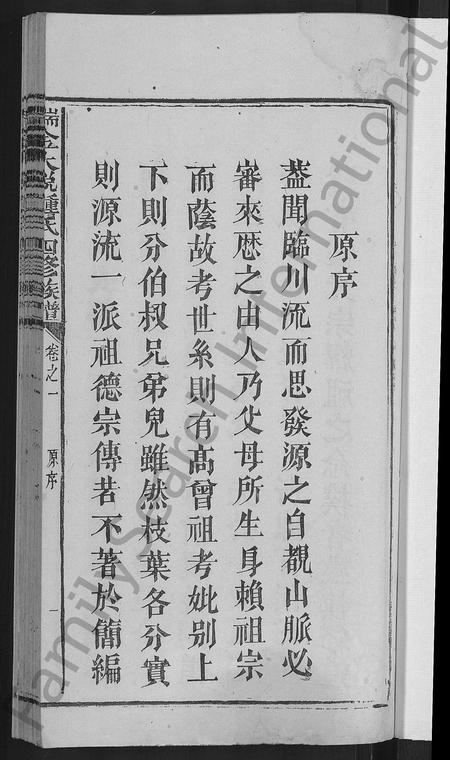 原序
蓋聞臨川流而思發源之自覩山脈必
審來歷之由人乃父母所生身賴祖宗
而蔭故考世系則有高曾祖考妣別上
下則分伯叔兄弟兒雖然枝葉各分實
則源流一派祖德宗傳若不著於簡編
瑞金大稅鍾氏四修族譜
卷之一
原序
一
Family Search International